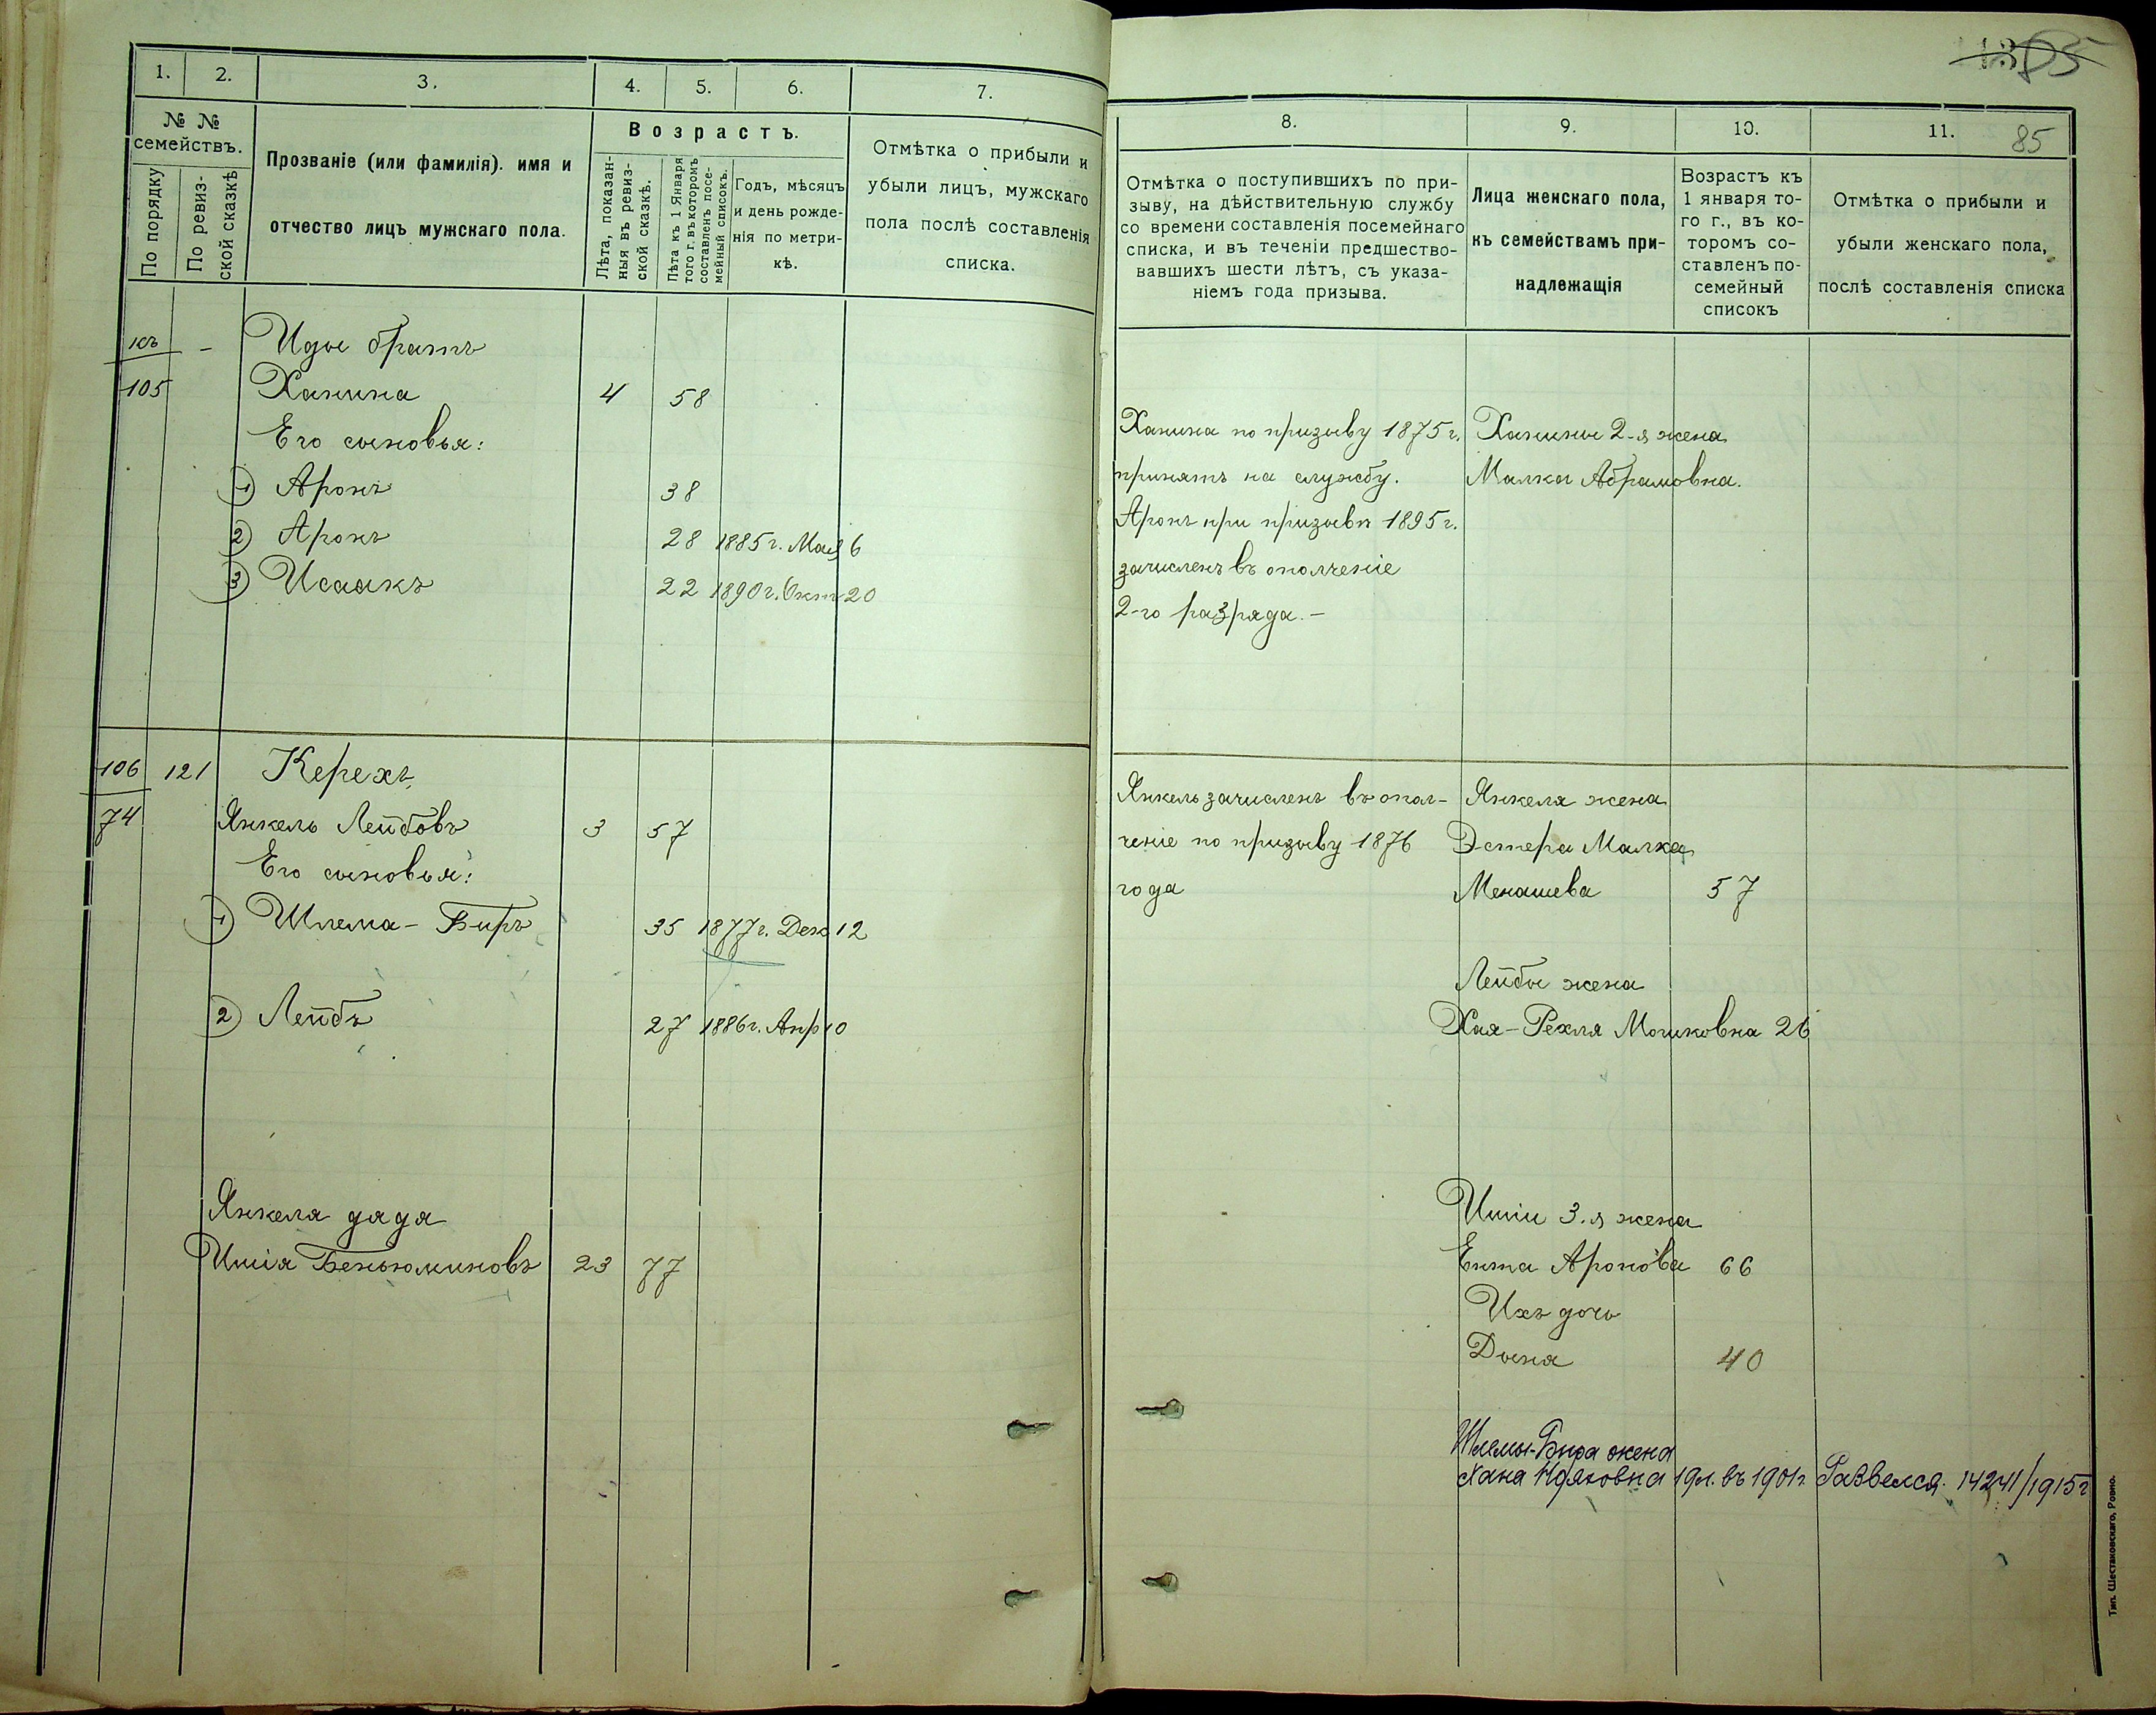 1.
2.
3.
4.
5.
6.
7.
№ №
семействъ.
По порядку
По ревиз-
ской сказкѣ
Прозваніе (или фамилія). имя и
отчество лицъ мужскаго пола.
Возрастъ.
Лѣта, показан-
ныя въ ревиз-
ской сказкѣ.
Лѣта къ 1 Января
того г. въ которомъ
составленъ посе-
мейный списокъ.
Годъ, мѣсяцъ
и день рожде-
нія по метри-
кѣ.
Отмѣтка о прибыли и
убыли лицъ, мужскаго
пола послѣ составленія
списка.
къ - Иды братъ
105 Ханина 4 58
Его сыновья:
1) Аронъ 38
2) Аронъ 28 1885 г. Мая 6
3) Исаакъ 22 1890 г. Окт 20
106 121 Керехъ
74 Янкель Лейбовъ 3 57
Его сыновья:
1) Шлема-Биръ 35 1877 г. Дек 12
2) Лейбъ 27 1886 г. Апр 10
Янкеля дядя
Ишія Беньюминовъ 23 77
85
8.
9.
10.
11.
85
Отмѣтка о поступившихъ по при-
зыву, на дѣйствительную службу
со времени составленія посемейнаго
списка, и въ теченіи предшество-
вавшихъ шести лѣтъ, съ указа-
ніемъ года призыва.
Лица женскаго пола,
къ семействамъ при-
надлежащія
Возрастъ къ
1 января то-
го г., въ ко-
торомъ со-
ставленъ по-
семейный
списокъ
Отмѣтка о прибыли и
убыли женскаго пола,
послѣ составленія списка
Ханина по призыву 1875 г.
принятъ на службу.
Аронъ при призывѣ 1895 г.
зачисленъ въ ополченіе
2-го разряда.-
Ханины 2-я жена
Малка Абрамовна.
Янкель зачисленъ въ опол-
ченіе по призыву 1876
года
Янкеля жена
Эстера Малка
Менашева 57
Лейбы жена
Хая-Рехля Мошковна 26
Ишіи 3-я жена
Ента Аронова 66
Ихъ дочь
Дыня 40
Шлемы-Бира жена
Хана 19 л. въ 1901 г. Развелся. 14241/1915 г
Тип. Шестаковскаго, Ровно.